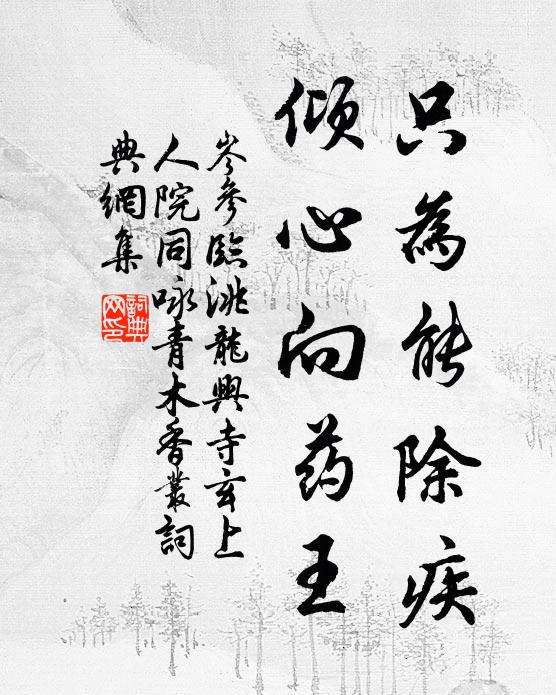 只為能除疾
傾心向药王
岑參臨洮龍興寺玄上
人院同咏青木香叢詞
典網集
詞典
网印